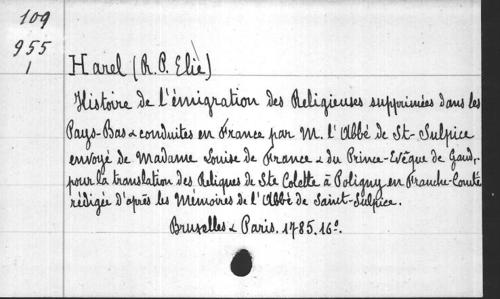 109
955
1
Harel (R.P. Elie)
Histoire de l'émigration des Religieuses supprimées dans les
Pays-Bas & conduites en France par M. l'Abbé de St-Sulpice
envoyé de Madame Louise de France & du Prince-Evêque de Gand,
pour la translation des Reliques de Ste Colette à Poligny en Franche-Comté
rédigée d'après les Mémoires de l'Abbé de Saint-Sulpice.
Bruxelles & Paris. 1785. 16°.